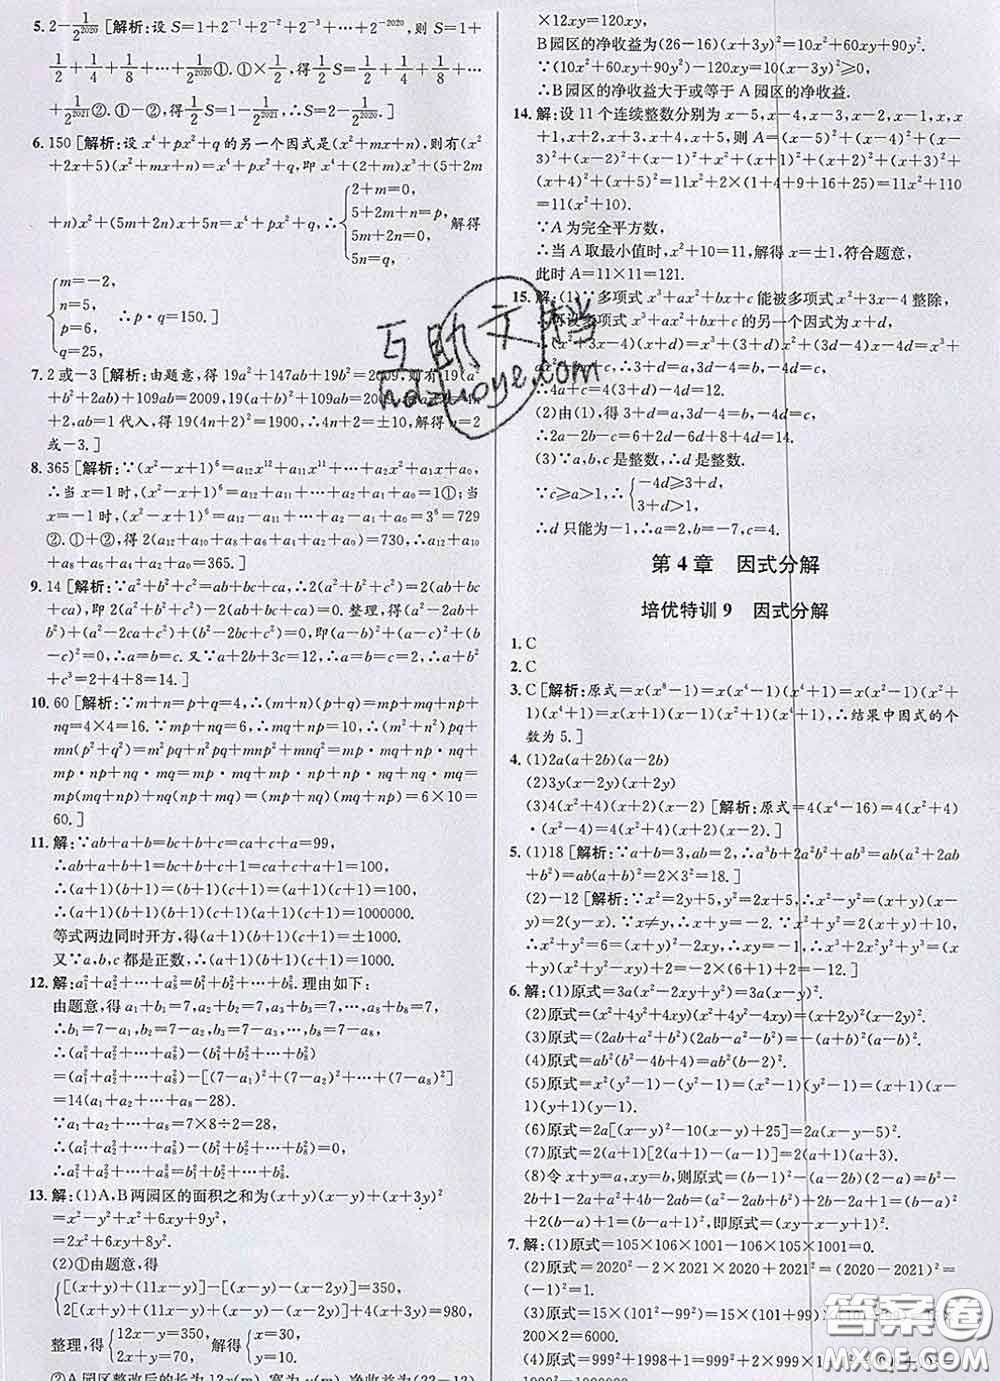 5. 2-1/2^2020 [解析:设 S=1+2^-1+2^-2+2^-3+…+2^-2020,则 S=1+
1/2+1/4+1/8+…+1/2^2020①.①×1/2,得1/2S=1/2+1/4+1/8+…
+1/2^2021②.①-②,得1/2S=1-1/2^2021,∴S=2-1/2^2020.]
6. 150 [解析:设 x⁴+px²+q 的另一个因式是(x²+mx+n),则有(x²
+2x+5)(x²+mx+n)=x⁴+px²+q,即 x⁴+(2+m)x³+(5+2m
+n)x²+(5m+2n)x+5n=x⁴+px²+q,∴{2+m=0, 5+2m+n=p, 5m+2n=0, 5n=q, 解得
{m=-2, n=5, p=6, q=25, ∴p·q=150.]
7. 2 或-3 [解析:由题意,得 19a²+147ab+19b²=2009,则有 19(a²
+b²+2ab)+109ab=2009,19(a+b)²+109ab=2009.
n+2,ab=1 代入,得 19(4n+2)²=1900,∴4n+2=±10,解得 n=2
或-3.]
8. 365 [解析:∵(x²-x+1)⁶=a₁₂x¹²+a₁₁x¹¹+…+a₂x²+a₁x+a₀,
∴当 x=1 时,(x²-x+1)⁶=a₁₂+a₁₁+…+a₂+a₁+a₀=1①;当
x=-1 时,(x²-x+1)⁶=a₁₂-a₁₁+…+a₂-a₁+a₀=3⁶=729
②.①+②,得 2(a₁₂+a₁₀+a₈+a₆+a₄+a₂+a₀)=730,∴a₁₂+a₁₀
+a₈+a₆+a₄+a₂+a₀=365.]
9. 14 [解析:∵a²+b²+c²=ab+bc+ca,∴2(a²+b²+c²)=2(ab+bc
+ca),即 2(a²+b²+c²)-2(ab+bc+ca)=0.整理,得(a²-2ab+
b²)+(a²-2ca+c²)+(b²-2bc+c²)=0,即(a-b)²+(a-c)²+(b
-c)²=0,∴a=b=c.又∵a+2b+3c=12,∴a=b=c=2,∴a+b²
+c³=2+4+8=14.]
10. 60 [解析:∵m+n=p+q=4,∴(m+n)(p+q)=mp+mq+np+
nq=4×4=16.∵mp+nq=6,∴mq+np=10,∴(m²+n²)pq+
mn(p²+q²)=m²pq+n²pq+mnp²+mnq²=mp·mq+np·nq+
mp·np+mq·nq=mp·mq+mp·np+np·nq+mq·nq=
mp(mq+np)+nq(np+mq)=(mp+nq)(mq+np)=6×10=
60.]
11. 解:∵ab+a+b=bc+b+c=ca+c+a=99,
∴ab+a+b+1=bc+b+c+1=ca+c+a+1=100,
∴(a+1)(b+1)=(b+1)(c+1)=(a+1)(c+1)=100,
∴(a+1)(b+1)(b+1)(c+1)(a+1)(c+1)=1000000.
等式两边同时开方,得(a+1)(b+1)(c+1)=±1000.
又∵a,b,c 都是正数,∴(a+1)(b+1)(c+1)=1000.
12. 解:a₁²+a₂²+…+a₈²=b₁²+b₂²+…+b₈².理由如下:
由题意,得 a₁+b₁=7,a₂+b₂=7,a₃+b₃=7,…,a₈+b₈=7,
∴b₁=7-a₁,b₂=7-a₂,b₃=7-a₃,…,b₈=7-a₈,
∴(a₁²+a₂²+…+a₈²)-(b₁²+b₂²+…+b₈²)
=(a₁²+a₂²+…+a₈²)-[(7-a₁)²+(7-a₂)²+…+(7-a₈)²]
=14(a₁+a₂+…+a₈-28).
∵a₁+a₂+…+a₈=7×8÷2=28,
∴(a₁²+a₂²+…+a₈²)-(b₁²+b₂²+…+b₈²)=0,
∴a₁²+a₂²+…+a₈²=b₁²+b₂²+…+b₈².
13. 解:(1)A,B 两园区的面积之和为(x+y)(x-y)+(x+3y)²
=x²-y²+x²+6xy+9y²,
=2x²+6xy+8y².
(2)①由题意,得
{[(x+y)+(11x-y)]-[(x-y)-(x-2y)]=350,
2[(x+y)+(11x-y)+(x-y)-(x-2y)]+4(x+3y)=980,
整理,得{12x-y=350, 2x+y=70, 解得{x=30, y=10.
②A 园区整改后的长为 12x(m),宽为 y(m),净收益为(22-12)
×12xy=120xy(元),
B 园区的净收益为(26-16)(x+3y)²=10x²+60xy+90y².
∵(10x²+60xy+90y²)-120xy=10(x-3y)²≥0,
∴B 园区的净收益大于或等于 A 园区的净收益.
14. 解:设 11 个连续整数分别为 x-5,x-4,x-3,x-2,x-1,x,x
+1,x+2,x+3,x+4,x+5,则 A=(x-5)²+(x-4)²+(x-
3)²+(x-2)²+(x-1)²+x²+(x+1)²+(x+2)²+(x+3)²+
(x+4)²+(x+5)²=11x²+2×(1+4+9+16+25)=11x²+110
=11(x²+10).
∵A 为完全平方数,
∴当 A 取最小值时,x²+10=11,解得 x=±1,符合题意,
此时 A=11×11=121.
15. 解:(1)∵多项式 x³+ax²+bx+c 能被多项式 x²+3x-4 整除,
∴可设多项式 x³+ax²+bx+c 的另一个因式为 x+d,
∴(x²+3x-4)(x+d)=x³+(3+d)x²+(3d-4)x-4d=x³+
∴4a+c=4(3+d)-4d=12.
(2)由(1),得 3+d=a,3d-4=b,-4d=c,
∴2a-2b-c=2(3+d)-2(3d-4)+4d=14.
(3)∵a,b,c 是整数,∴d 是整数.
∵c≥a>1,∴{-4d≥3+d, 3+d>1,
∴d 只能为-1,∴a=2,b=-7,c=4.
第 4 章 因式分解
培优特训 9 因式分解
1. C
2. C
3. C [解析:原式=x(x⁸-1)=x(x⁴-1)(x⁴+1)=x(x²-1)(x²+
1)(x⁴+1)=x(x-1)(x+1)(x²+1)(x⁴+1),∴结果中因式的个
数为 5.]
4. (1)2a(a+2b)(a-2b)
(2)3y(x-2y)(x+2y)
(3)4(x²+4)(x+2)(x-2) [解析:原式=4(x⁴-16)=4(x²+4)
·(x²-4)=4(x²+4)(x+2)(x-2).]
5. (1)18 [解析:∵a+b=3,ab=2,∴a³b+2a²b²+ab³=ab(a²+2ab
+b²)=ab(a+b)²=2×3²=18.]
(2)-12 [解析:∵x²=2y+5,y²=2x+5,∴x²-y²=(x+y)(x-
y)=2(y-x).∵x≠y,∴x+y=-2.∵x²+y²=2(x+y)+10,
∴x²+y²=6=(x+y)²-2xy,∴xy=-1,∴x³+2x²y²+y³=(x
+y)(x²-xy+y²)+2x²y²=-2×(6+1)+2=-12.]
6. 解:(1)原式=3a(x²-2xy+y²)=3a(x-y)².
(2)原式=(x²+4y²+4xy)(x²+4y²-4xy)=(x+2y)²(x-2y)².
(3)原式=(2ab+a²+b²)(2ab-a²-b²)=-(a+b)²(a-b)².
(4)原式=ab²(b²-4b+4)=ab²(b-2)².
(5)原式=x²(y²-1)-(y²-1)=(x²-1)(y²-1)=(x+1)(x-
1)(y+1)(y-1).
(6)原式=2a[(x-y)²-10(x-y)+25]=2a(x-y-5)².
(7)原式=(a+1)[2(a+1)-(a-1)]=(a+1)(a+3).
(8)令 x+y=a,xy=b,则原式=(b-1)²-(a-2b)(2-a)=b²-
2b+1-2a+a²+4b-2ab=(a²-2ab+b²)+2b-2a+1=(b-a)²
+2(b-a)+1=(b-a+1)²,即原式=(xy-x-y+1)².
7. 解:(1)原式=105×106×1001-106×105×1001=0.
(2)原式=2020²-2×2021×2020+2021²=(2020-2021)²=
(-1)²=1.
(3)原式=15×(101²-99²)=15×(101+99)×
200×2=6000.
(4)原式=999²+1998+1=999²+2×
互助文档
hdzuoye.com
答案圈
MXQE.COM